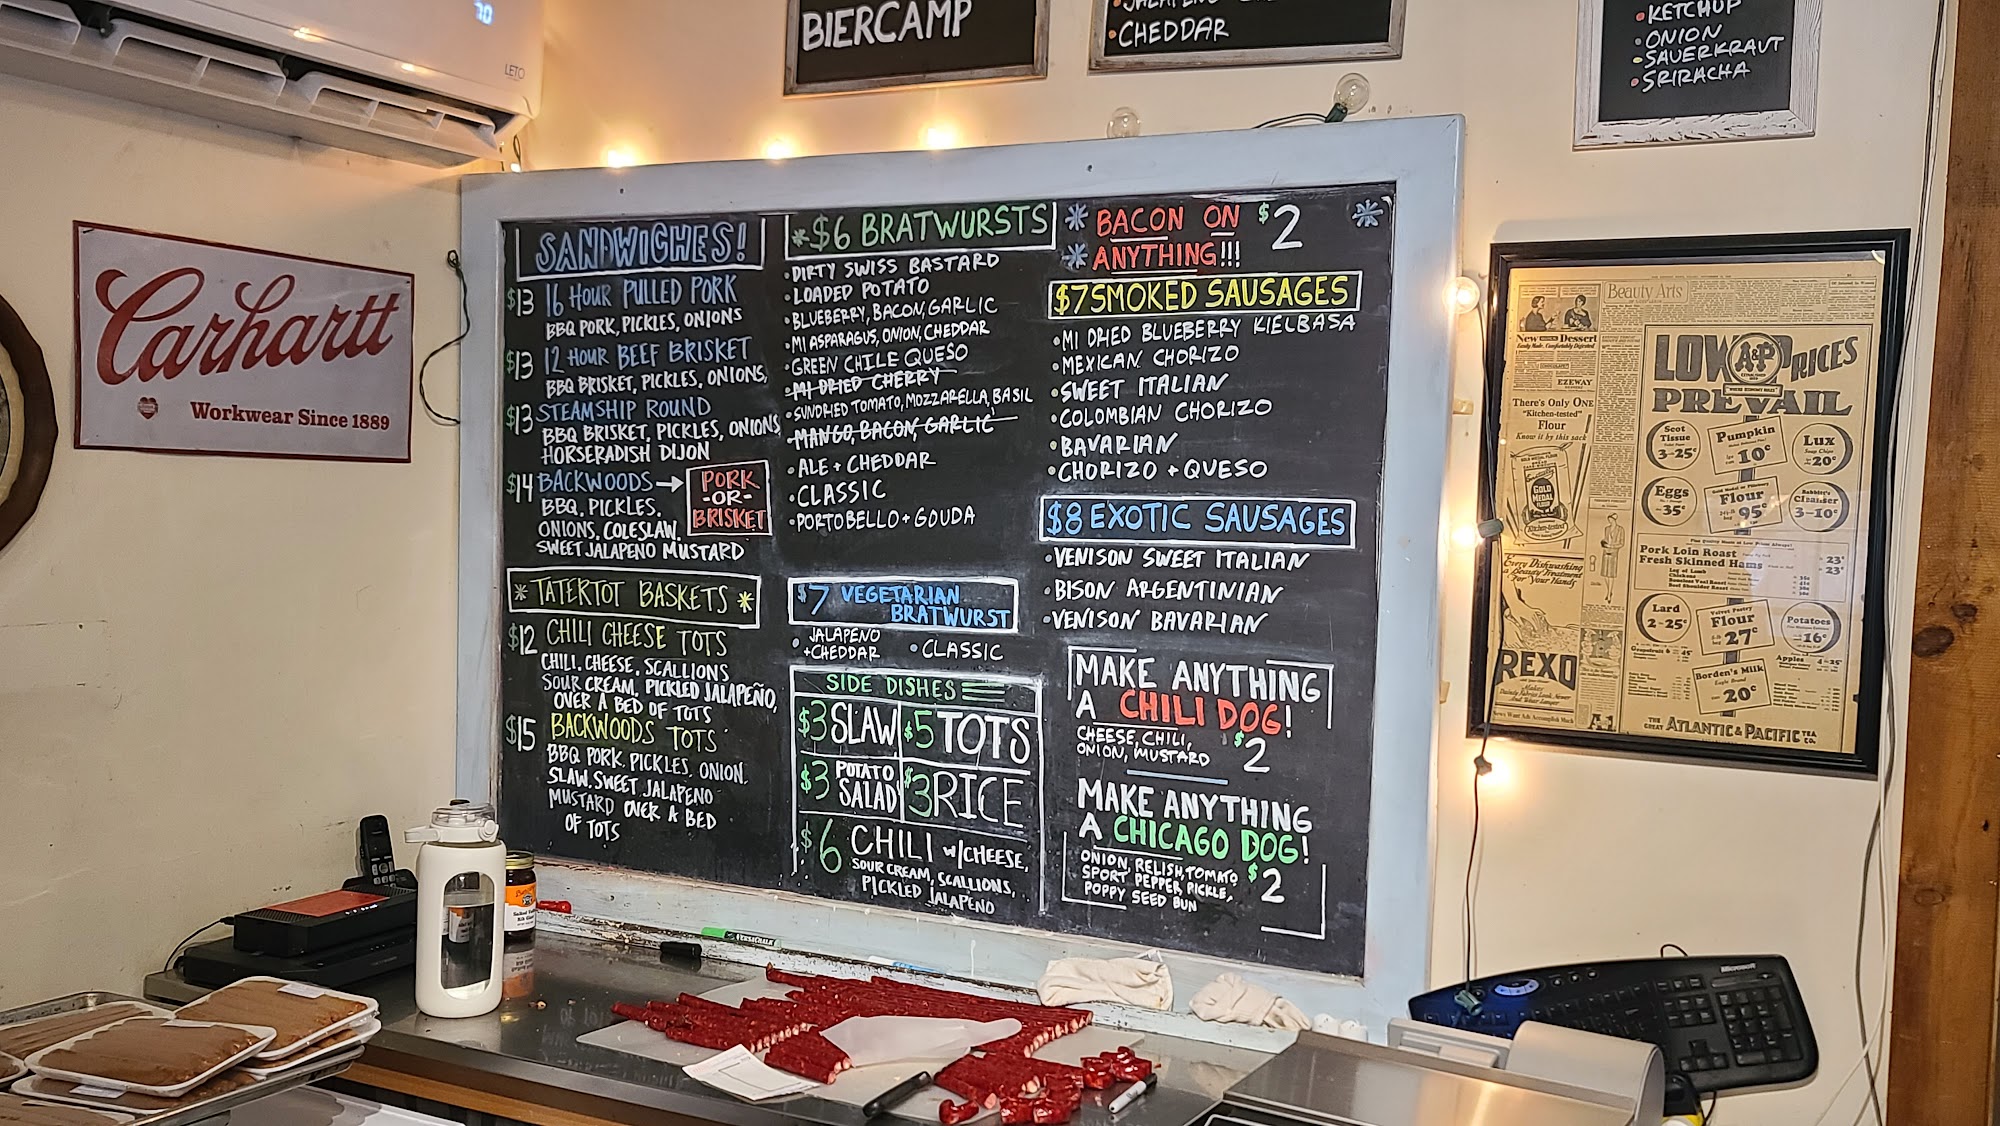 70
LETO
BIERCAMP
CHEDDAR
• KETCHUP
• ONION
• SAUERKRAUT
• SRIRACHA
Carhartt
Workwear Since 1889
SANDWICHES!
$13 16 HOUR PULLED PORK
BBQ PORK, PICKLES, ONIONS
$13 12 HOUR BEEF BRISKET
BBQ BRISKET, PICKLES, ONIONS,
$13 STEAMSHIP ROUND
BBQ BRISKET, PICKLES, ONIONS,
HORSERADISH DIJON
$14 BACKWOODS → PORK -OR- BRISKET
BBQ, PICKLES,
ONIONS, COLESLAW,
SWEET JALAPENO MUSTARD
* TATERTOT BASKETS *
$12 CHILI CHEESE TOTS
CHILI, CHEESE, SCALLIONS
SOUR CREAM, PICKLED JALAPEÑO,
OVER A BED OF TOTS
$15 BACKWOODS TOTS
BBQ PORK, PICKLES, ONION,
SLAW, SWEET JALAPENO
MUSTARD OVER A BED
OF TOTS
* $6 BRATWURSTS
• DIRTY SWISS BASTARD
• LOADED POTATO
• BLUEBERRY, BACON, GARLIC
• MI ASPARAGUS, ONION, CHEDDAR
• GREEN CHILE QUESO
• MI DRIED CHERRY
• SUNDRIED TOMATO, MOZZARELLA, BASIL
• MANGO, BACON, GARLIC
• ALE + CHEDDAR
• CLASSIC
• PORTOBELLO + GOUDA
$7 VEGETARIAN
BRATWURST
• JALAPENO
+CHEDDAR
• CLASSIC
SIDE DISHES
$3 SLAW $5 TOTS
$3 POTATO SALAD $3 RICE
$6 CHILI W/CHEESE,
SOUR CREAM, SCALLIONS,
PICKLED JALAPENO
* BACON ON $2
* ANYTHING!!!
$7 SMOKED SAUSAGES
• MI DRIED BLUEBERRY KIELBASA
• MEXICAN CHORIZO
• SWEET ITALIAN
• COLOMBIAN CHORIZO
• BAVARIAN
• CHORIZO + QUESO
$8 EXOTIC SAUSAGES
• VENISON SWEET ITALIAN
• BISON ARGENTINIAN
• VENISON BAVARIAN
MAKE ANYTHING
A CHILI DOG!
CHEESE, CHILI,
ONION, MUSTARD $2
MAKE ANYTHING
A CHICAGO DOG!
ONION, RELISH, TOMATO,
SPORT PEPPER, PICKLE, $2
POPPY SEED BUN
Beauty Arts
New Dessert
EZEWAY
There's Only ONE
"Kitchen-tested"
Flour
Know it by this sack
GOLD MEDAL
Every Dishwashing
a Beauty Treatment
For Your Hands
REXO
LOW A&P PRICES
PREVAIL
Scot Tissue 3-25¢
Pumpkin 10¢
Lux 20¢
Eggs 35¢
Flour 95¢
Cleanser 3-10¢
Pork Loin Roast 23¢
Fresh Skinned Hams 23¢
Lard 2-25¢
Velvet Pastry Flour 27¢
Potatoes 16¢
Borden's Milk 20¢
Apples
THE GREAT ATLANTIC & PACIFIC TEA CO.
VERSACHALK
Microsoft